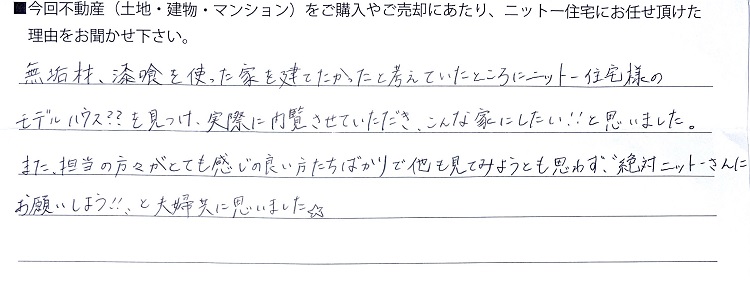 ■今回不動産（土地・建物・マンション）をご購入やご売却にあたり、ニットー住宅にお任せ頂けた
理由をお聞かせ下さい。
無垢材、漆喰を使った家を建てたかったと考えていたところにニットー住宅様の
モデルハウス??を見つけ、実際に内覧させていただき、こんな家にしたい!!と思いました。
また、担当の方々がとても感じの良い方たちばかりで他も見てみようとも思わず、“絶対ニットーさんに
お願いしよう!!、と夫婦共に思いました☆